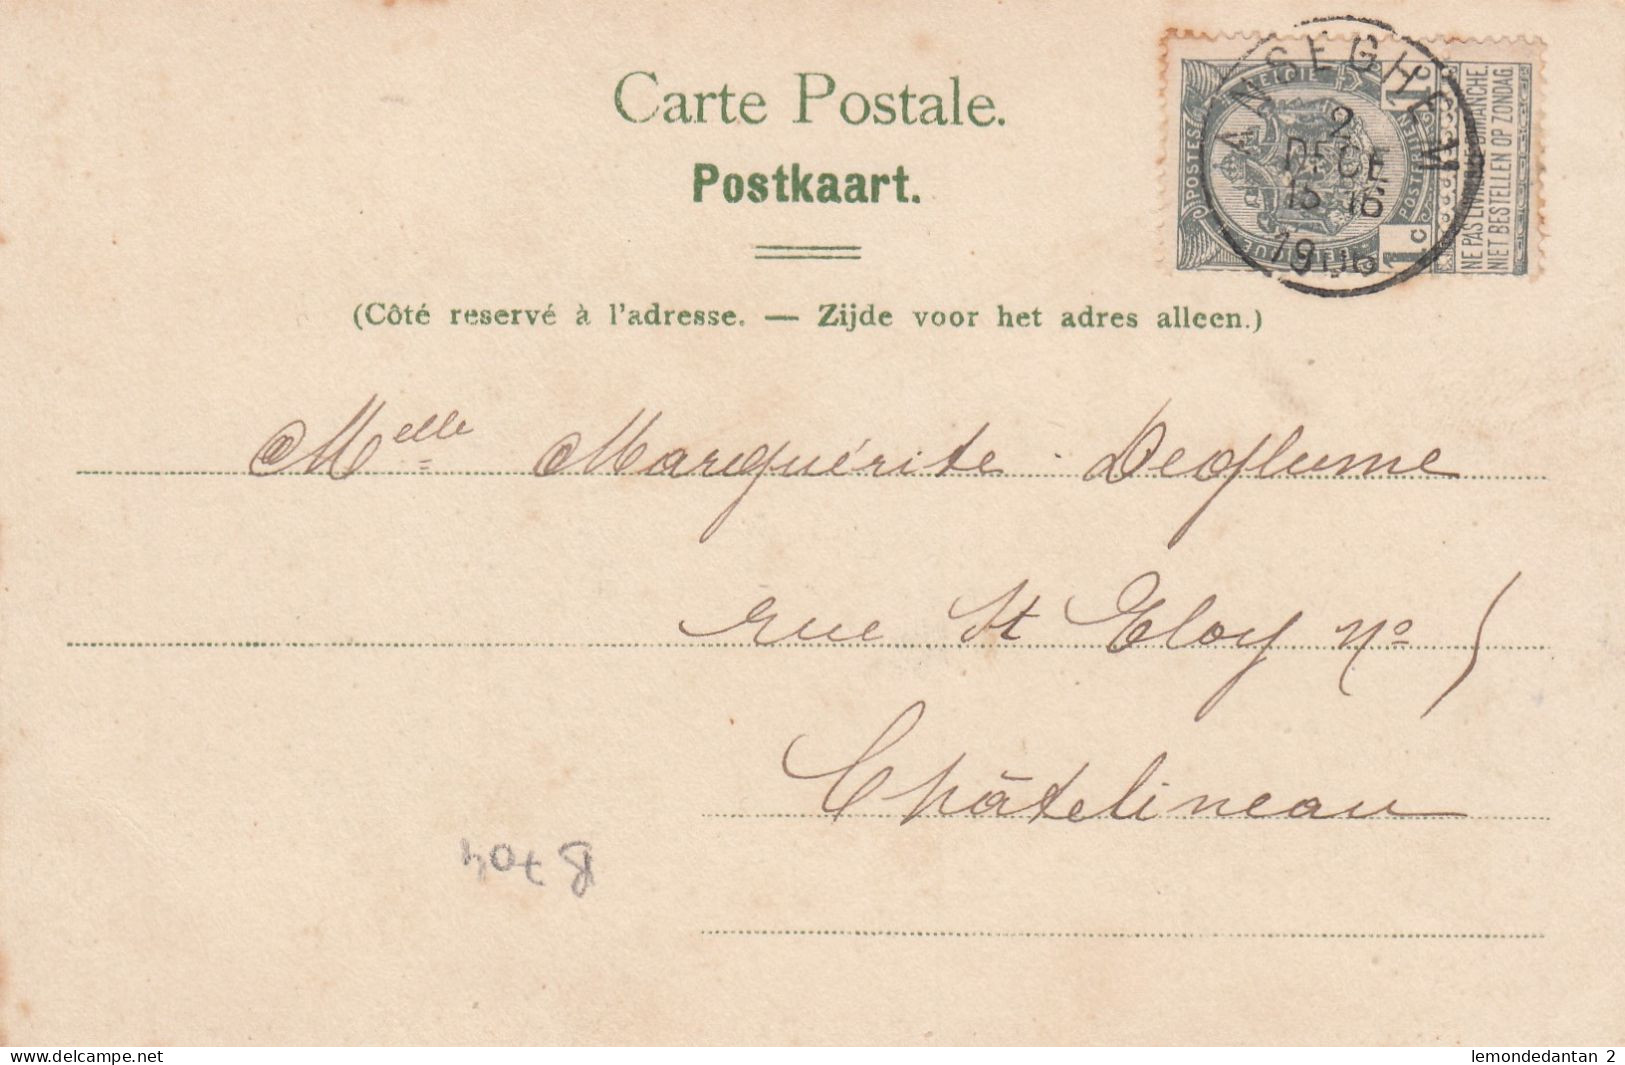 Carte Postale.
Postkaart.
(Côté reservé à l'adresse. — Zijde voor het adres alleen.)
ANSEGHEM
2
DECE
15-16
POSTES
BELGIË
POSTERIJEN
BELGIQUE
1c
NE PAS LIVRER LE DIMANCHE.
NIET BESTELLEN OP ZONDAG.
Melle Marguérite Deflume
rue St Eloy No
Châtelineau
delcampe.net
lemondedantan 2